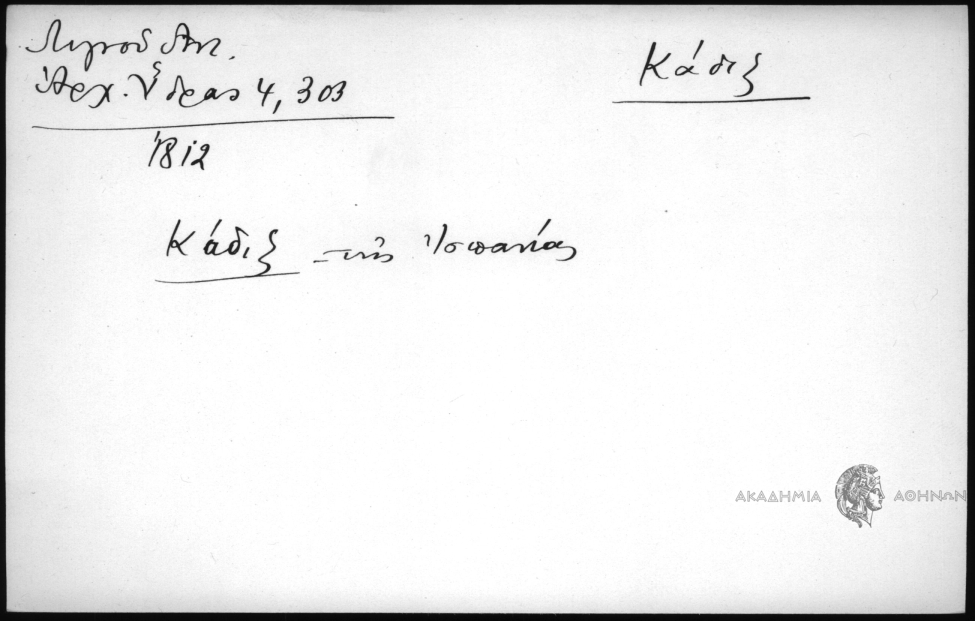 Λιγνοῦ Ἀντ.
Ἀρχ. Ὕδρας 4, 303
Κάδιξ
1812
Κάδιξ τῆς Ἱσπανίας
ΑΚΑΔΗΜΙΑ ΑΘΗΝΩΝ